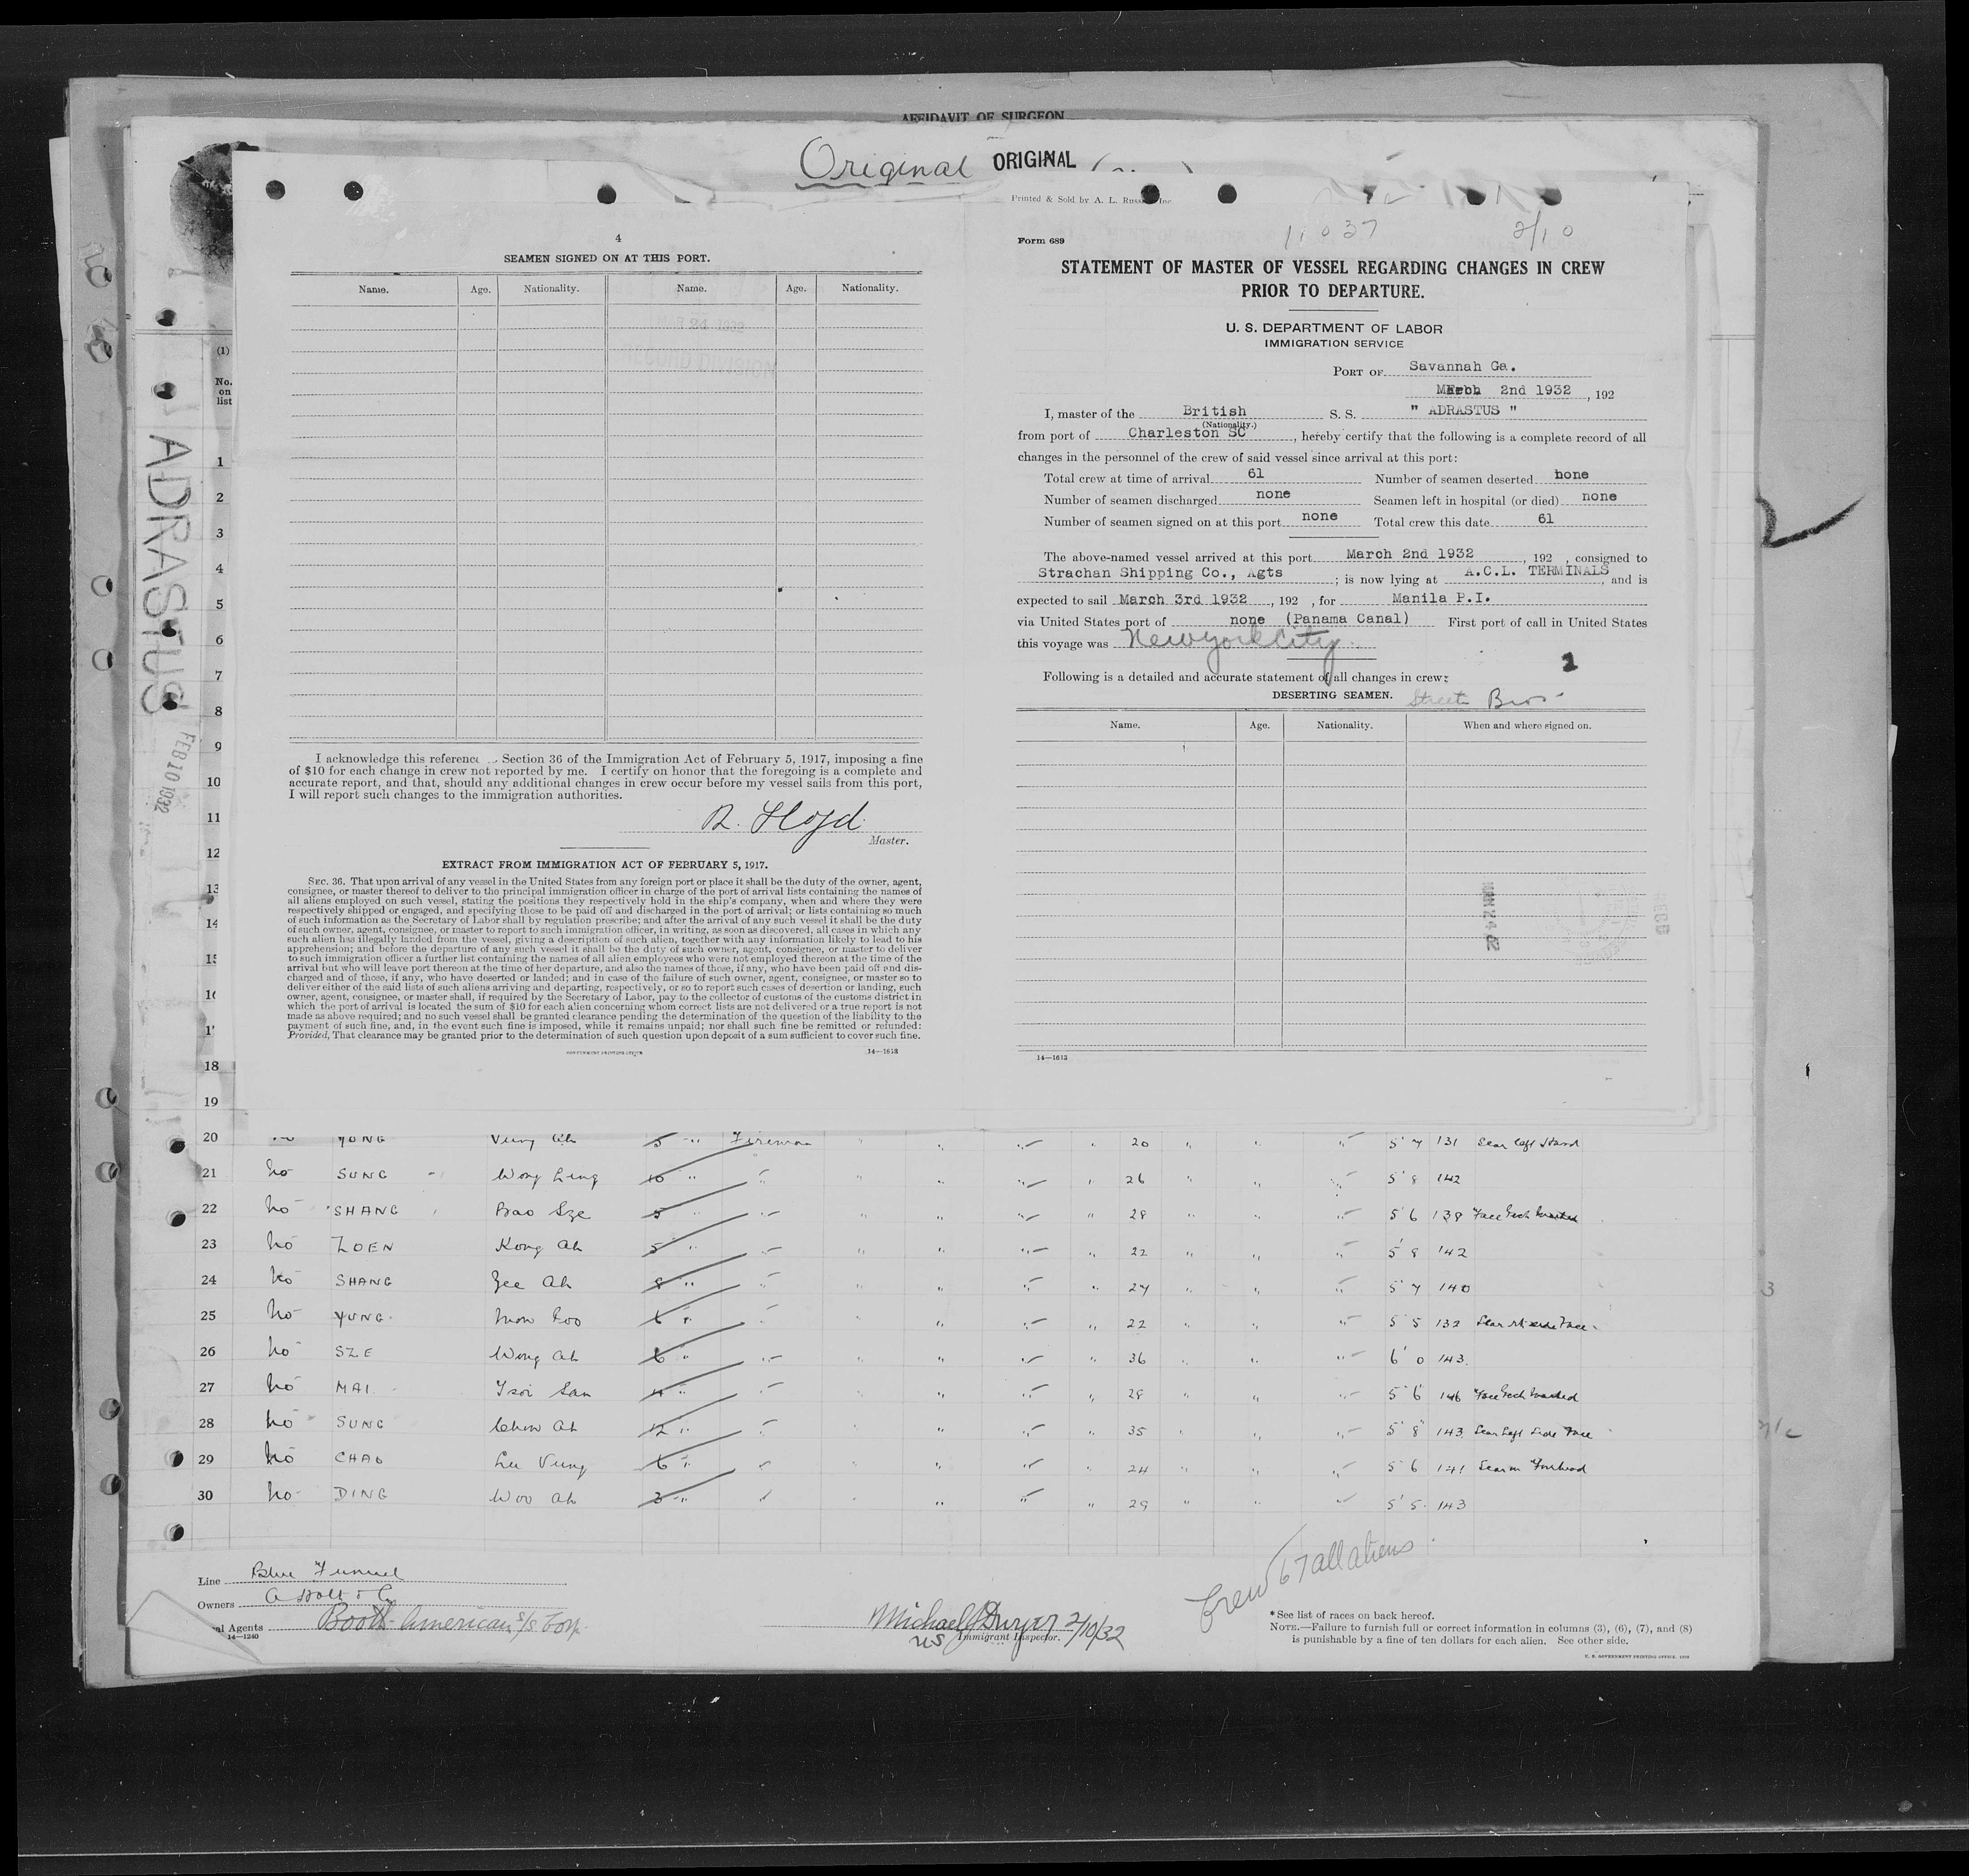 AFFIDAVIT OF SURGEON
Original ORIGINAL
ADRASTUS
FEB 10 1932
(1)
No.
on
list
1
2
3
4
5
6
7
8
9
10
11
12
13
14
18
19
4
SEAMEN SIGNED ON AT THIS PORT.
Name. Age. Nationality. Name. Age. Nationality.
I acknowledge this reference Section 36 of the Immigration Act of February 5, 1917, imposing a fine
of $10 for each change in crew not reported by me. I certify on honor that the foregoing is a complete and
accurate report, and that, should any additional changes in crew occur before my vessel sails from this port,
I will report such changes to the immigration authorities.
R. Lloyd
Master.
EXTRACT FROM IMMIGRATION ACT OF FEBRUARY 5, 1917.
SEC. 36. That upon arrival of any vessel in the United States from any foreign port or place it shall be the duty of the owner, agent,
consignee, or master thereof to deliver to the principal immigration officer in charge of the port of arrival lists containing the names of
all aliens employed on such vessel, stating the positions they respectively hold in the ship's company, when and where they were
respectively shipped or engaged, and specifying those to be paid off and discharged in the port of arrival; or lists containing so much
of such information as the Secretary of Labor shall by regulation prescribe; and after the arrival of any such vessel it shall be the duty
of such owner, agent, consignee, or master to report to such immigration officer, in writing, as soon as discovered, all cases in which any
such alien has illegally landed from the vessel, giving a description of such alien, together with any information likely to lead to his
apprehension; and before the departure of any such vessel it shall be the duty of such owner, agent, consignee, or master to deliver
to such immigration officer a further list containing the names of all alien employees who were not employed thereon at the time of the
arrival but who will leave port thereon at the time of her departure, and also the names of those, if any, who have been paid off and dis-
charged and of those, if any, who have deserted or landed; and in case of the failure of such owner, agent, consignee, or master so to
deliver either of the said lists of such aliens arriving and departing, respectively, or so to report such cases of desertion or landing, such
owner, agent, consignee, or master shall, if required by the Secretary of Labor, pay to the collector of customs of the customs district in
which the port of arrival is located the sum of $10 for each alien concerning whom correct lists are not delivered or a true report is not
made as above required; and no such vessel shall be granted clearance pending the determination of the question of the liability to the
payment of such fine, and, in the event such fine is imposed, while it remains unpaid; nor shall such fine be remitted or refunded:
Provided, That clearance may be granted prior to the determination of such question upon deposit of a sum sufficient to cover such fine.
GOVERNMENT PRINTING OFFICE 14—1613
Printed & Sold by A. L. Inc
11037 2/10
Form 689
STATEMENT OF MASTER OF VESSEL REGARDING CHANGES IN CREW
PRIOR TO DEPARTURE.
U. S. DEPARTMENT OF LABOR
IMMIGRATION SERVICE
PORT OF Savannah Ga.
March 2nd 1932, 192
I, master of the British S. S. " ADRASTUS "
(Nationality.)
from port of Charleston SC, hereby certify that the following is a complete record of all
changes in the personnel of the crew of said vessel since arrival at this port:
Total crew at time of arrival 61 Number of seamen deserted none
Number of seamen discharged none Seamen left in hospital (or died) none
Number of seamen signed on at this port none Total crew this date 61
The above-named vessel arrived at this port March 2nd 1932, 192 , consigned to
Strachan Shipping Co., Agts; is now lying at A.C.L. TERMINALS, and is
expected to sail March 3rd 1932, 192 , for Manila P.I.
via United States port of none (Panama Canal) First port of call in United States
this voyage was New York City
1
Following is a detailed and accurate statement of all changes in crew:
DESERTING SEAMEN. Street Bros
Name. Age. Nationality. When and where signed on.
14—1613
20 no YONG Vung Ah 5 " Fireman 20 5' 7 131 Scar left Hand
21 no SUNG Wong Ling 10 " 26 5' 8 142
22 no SHANG Bao Sze 5 " 28 5 6 138 Face Pock Marked
23 no ZOEN Kong Ah 5 " 22 5' 8 142
24 no SHANG Zee Ah 8 " 27 5' 7 140
25 no YUNG 6 " 22 5' 5 132
26 no SZE Wong Ah 6 " 36 6' 0 143
27 no MAI Tsoi San " 28 5' 6 146 Face Pock Marked
28 no SUNG Chow Ah 12 " 35 5' 8 143 Scar Left Side Face
29 no CHAO Vung 6 " 24 5' 6 141 Scar on Forehead
30 no DING Woo Ah 3 " 29 5' 5 143
Crew 67 all aliens
Line Blue Funnel
Owners A Holt & Co
al Agents Booth American S/S Corp.
14—1240
Michael J Dwyer 2/10/32
US Immigrant Inspector.
* See list of races on back hereof.
NOTE.—Failure to furnish full or correct information in columns (3), (6), (7), and (8)
is punishable by a fine of ten dollars for each alien. See other side.
U. S. GOVERNMENT PRINTING OFFICE